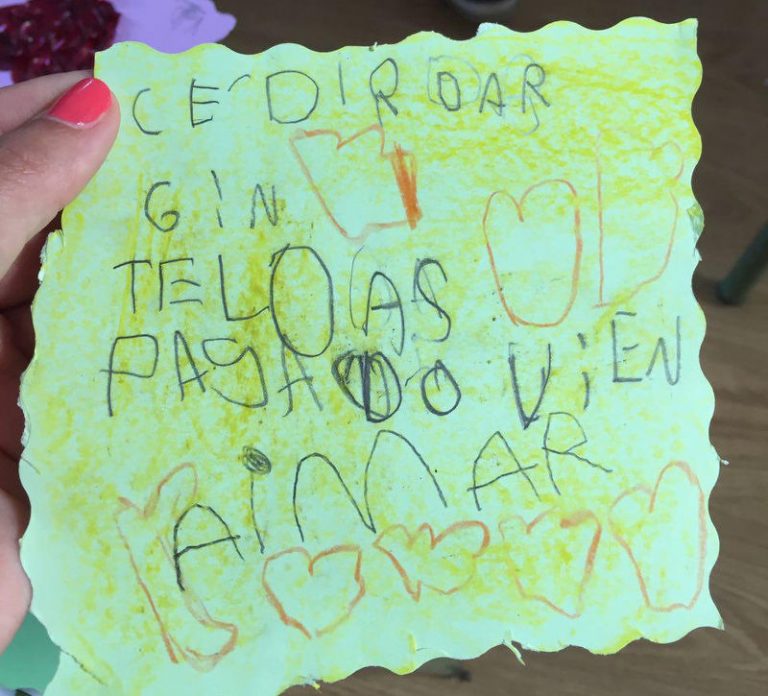 CE DIRDAR
GIN
TELO AS
PASADO ViEN
AiMAR